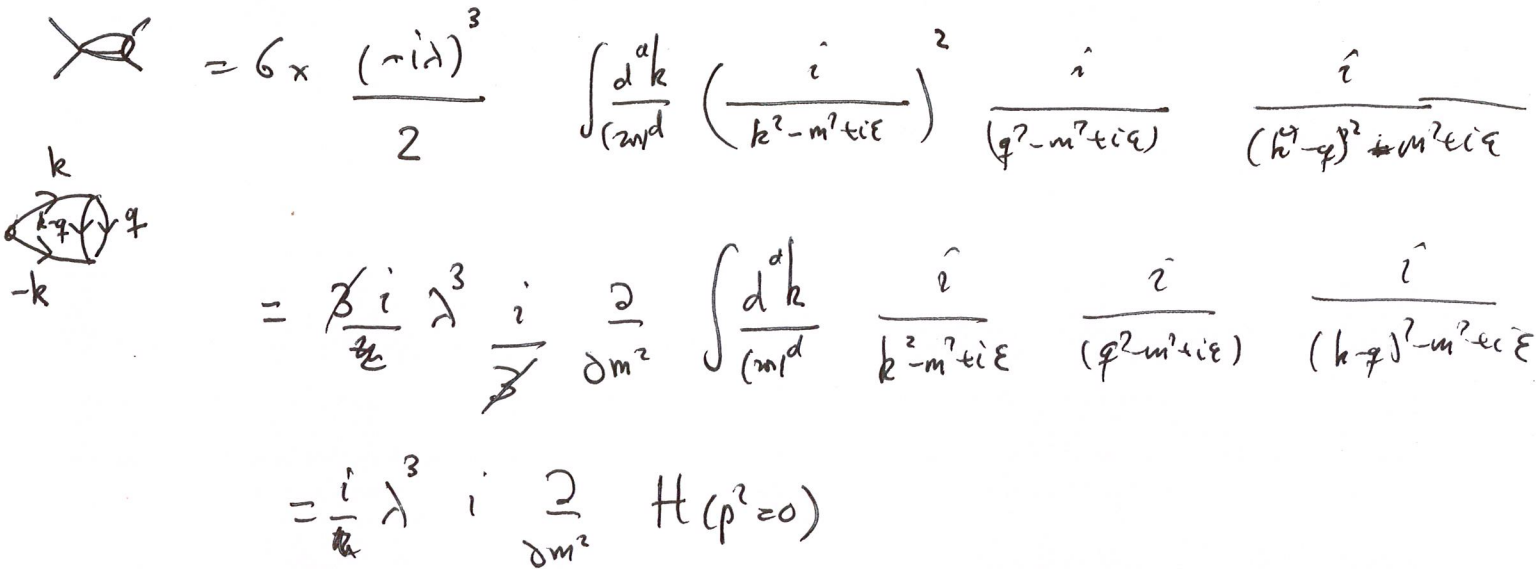 = 6 × (-iλ)³/2 ∫ dᵈk/(2π)ᵈ (i/(k²-m²+iε))² i/(q²-m²+iε) i/((k-q)²-m²+iε)
k
k-q q
-k
= 3i λ³ i/3 ∂/∂m² ∫ dᵈk/(2π)ᵈ i/(k²-m²+iε) i/(q²-m²+iε) i/((k-q)²-m²+iε)
= i λ³ i ∂/∂m² H(p²=0)